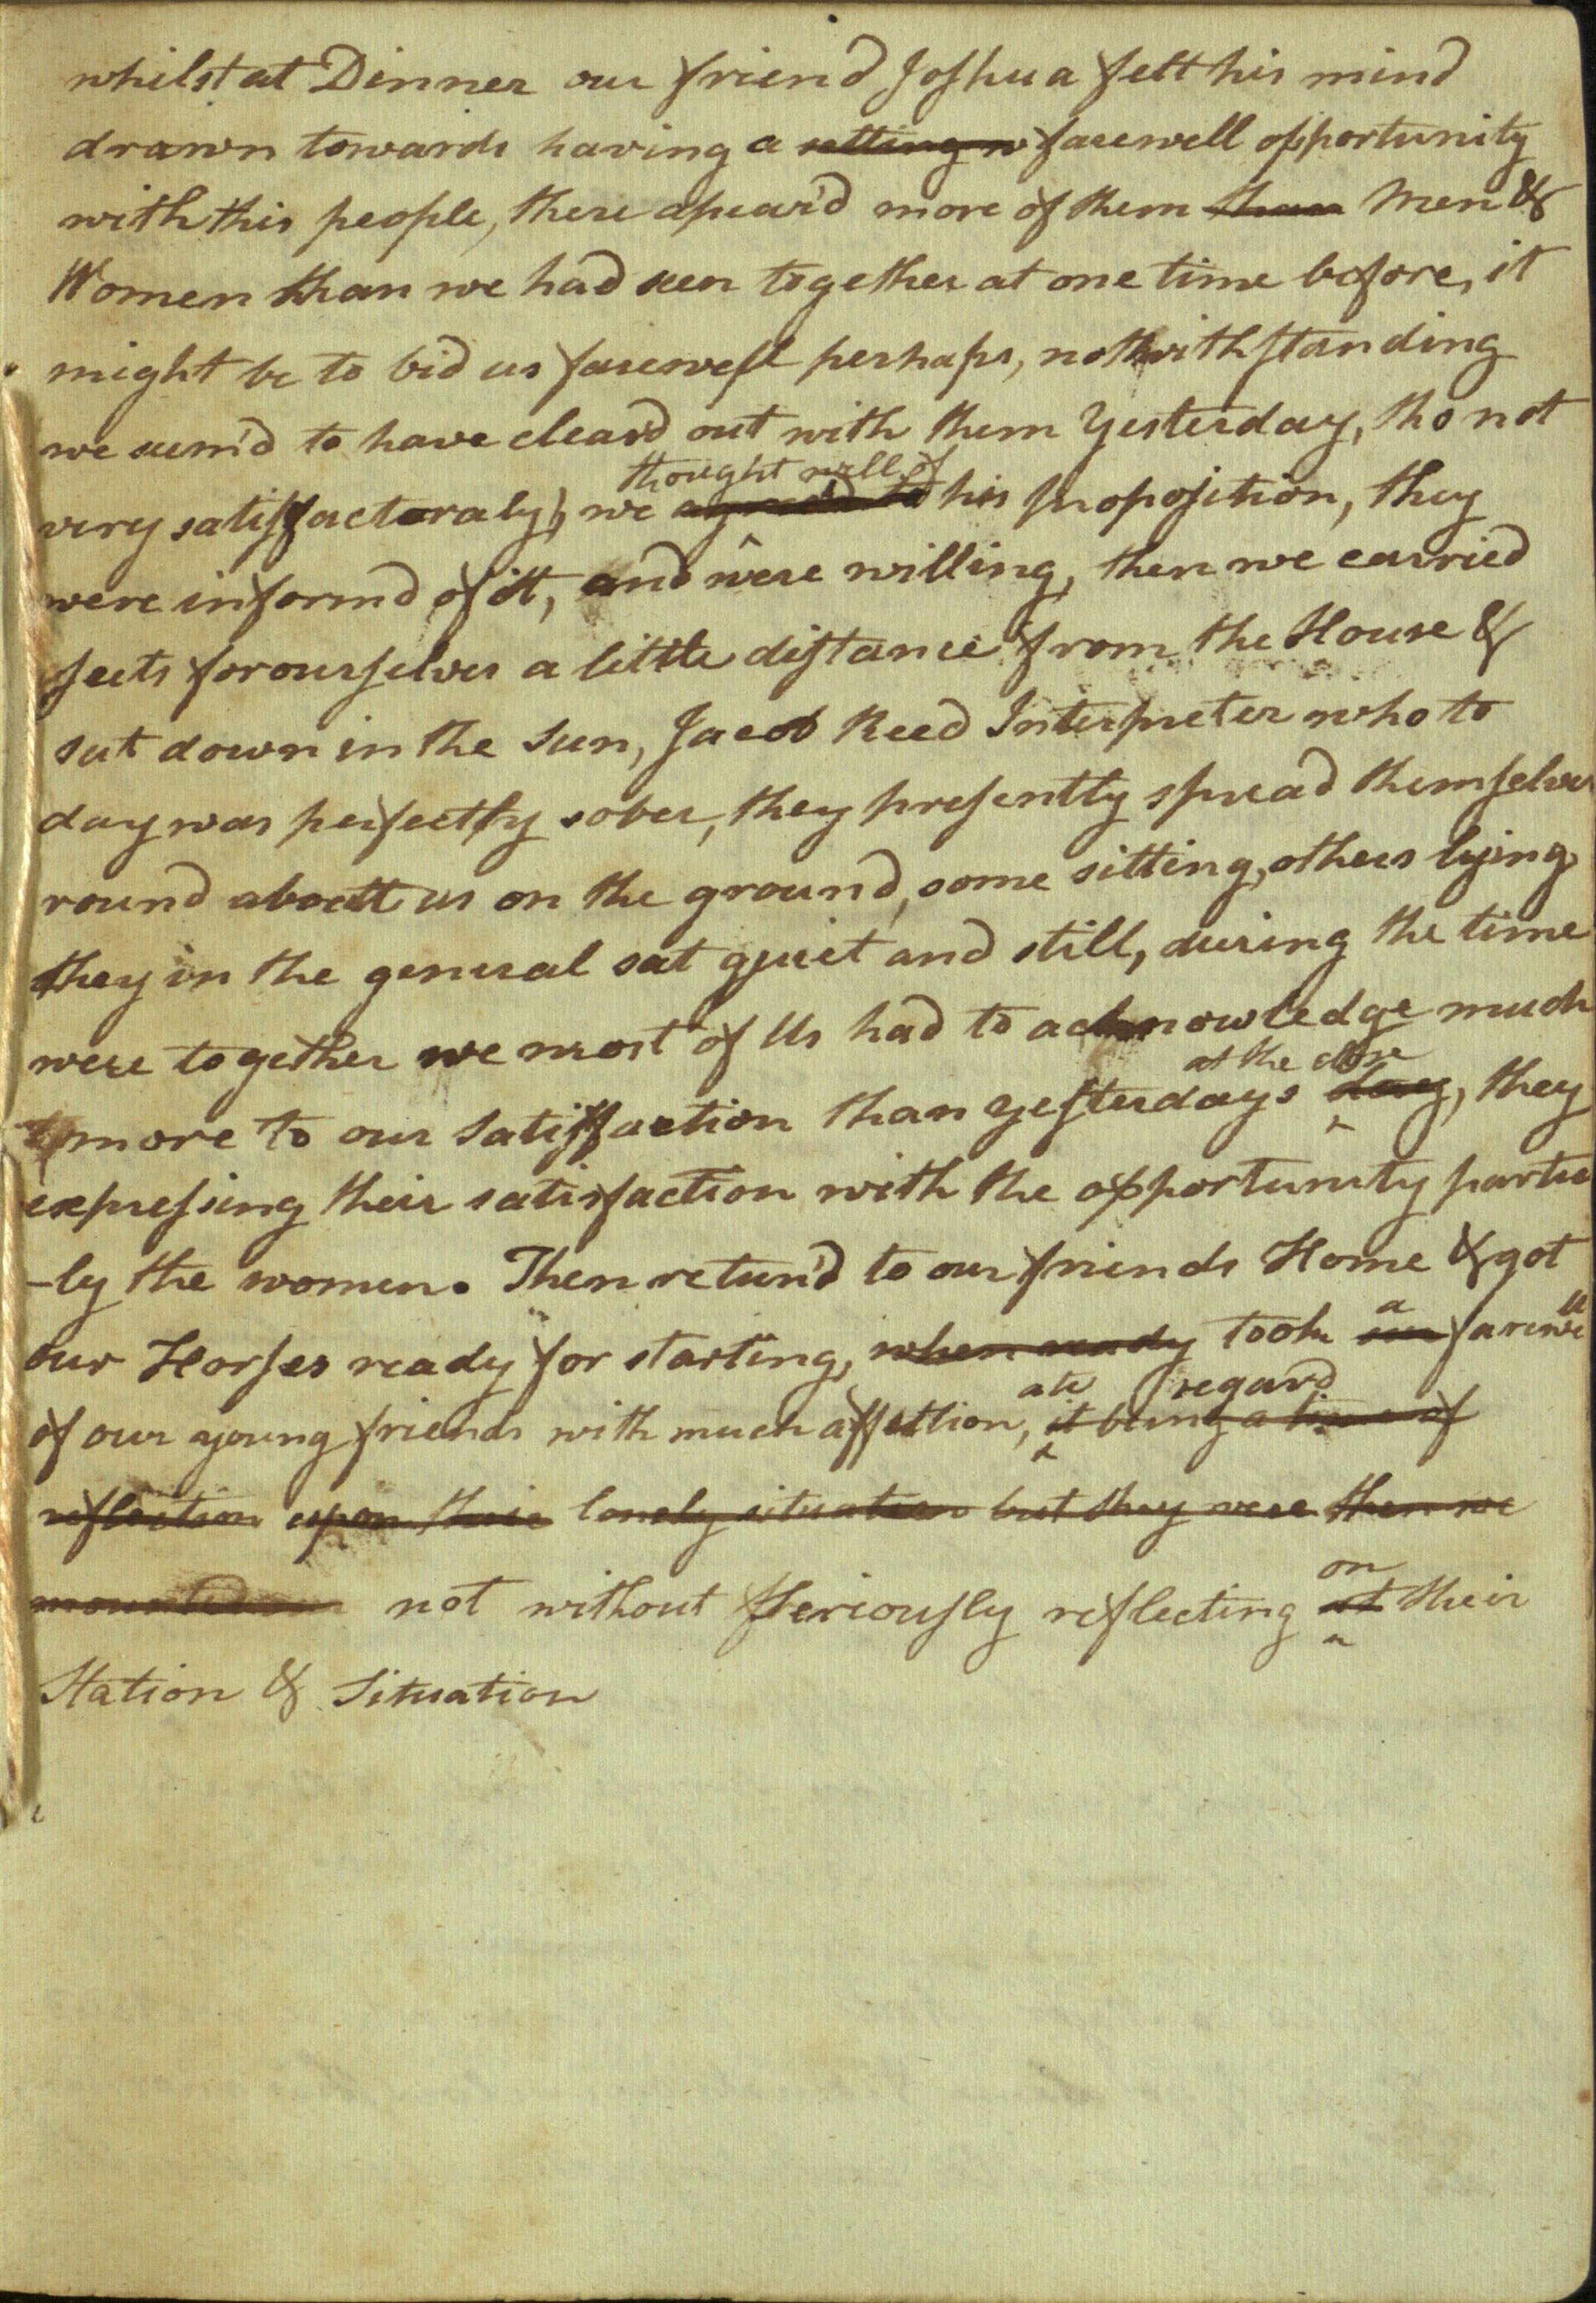 whilst at Dinner our friend Joshua felt his mind
drawn towards having a setting farewell opportunity
with this people, there apear'd more of them than Men &
Women than we had seen together at one time before, it
might be to bid us farewell perhaps, notwithstanding
we seem'd to have cleard out with them Yesterday, tho not
thought well of
very satisfactoraly, we agreed to his proposition, they
were informd of it, and were willing, then we carried
seets for ourselves a little distance from the House &
sat down in the sun, Jacob Reed Interpreter who to
day was perfectly sober, they presently spread themselves
round about us on the ground, some sitting, others lying
they in the general sat quiet and still, during the time
were together we most of Us had to acknowledge much
at the close
more to our satisfaction than yesterdays day, they
expressing their satisfaction with the opportunity particu
-ly the women. Then return'd to our friends Home & got
a
our Horses ready for starting, when ready took our farewell
ate regard
of our young friends with much affection, it being a time of
reflection upon their lonely situation but they were then we
on
mounted our not without seriously reflecting at their
Station & Situation